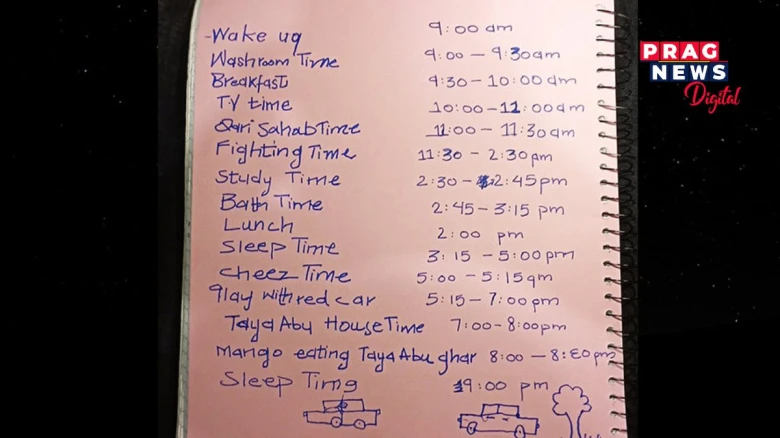 PRAG
NEWS
Digital
-Wake uq 9:00 am
Washroom Time 9:00 - 9:30am
Breakfast 9:30 - 10:00am
TV time 10:00-11:00am
Qari SahabTime 11:00 - 11:30am
Fighting Time 11:30 - 2:30pm
Study Time 2:30 - 2:45pm
Bath Time 2:45 - 3:15 pm
Lunch 2:00 pm
Sleep Time 3:15 - 5:00pm
Cheez Time 5:00 - 5:15qm
Play with red car 5:15 - 7:00pm
Taya Abu House Time 7:00-8:00pm
Mango eating Taya Abu ghar 8:00 - 8:30pm
Sleep Time 9:00 pm